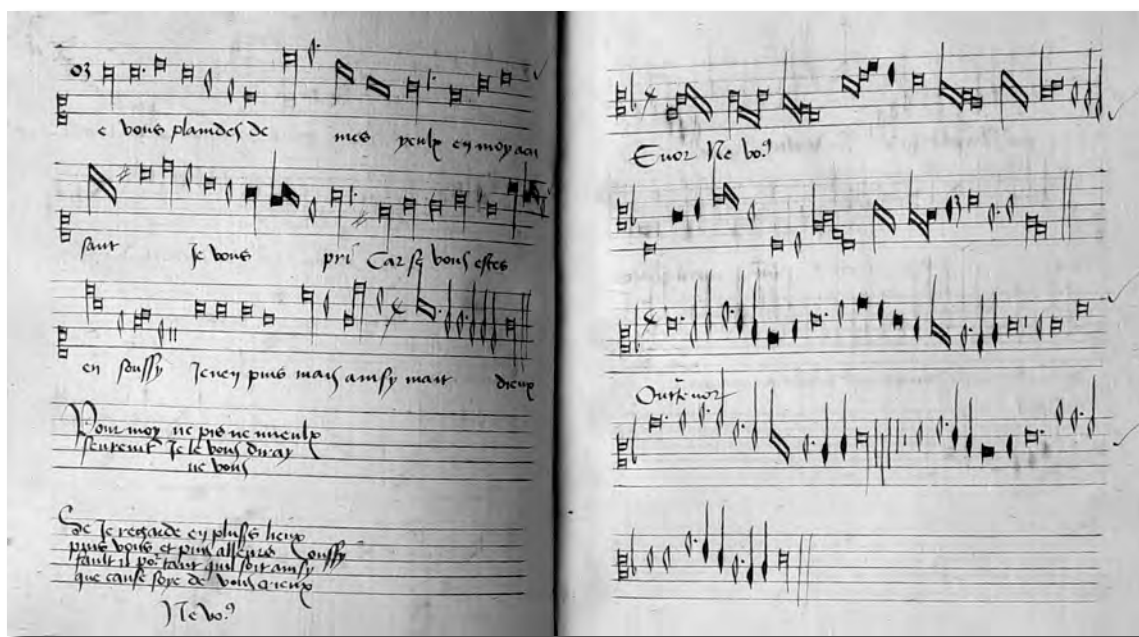 e vous plaindes de mes yeulx en moy acu
sant Je vous pri Car sy vous estes
en soussy Je ney puis mais ainsy mait dieux
Pour moy ne pis ne mieulx
seuremt Je le vous diray
ne vous
Se Je regarde en plusss lieux
puis vous et puis alleurs soussy
fault il por tant quil soit ainsy
que cause soye de vous
Ne vo9
Enor Ne vo9
Ourtenor